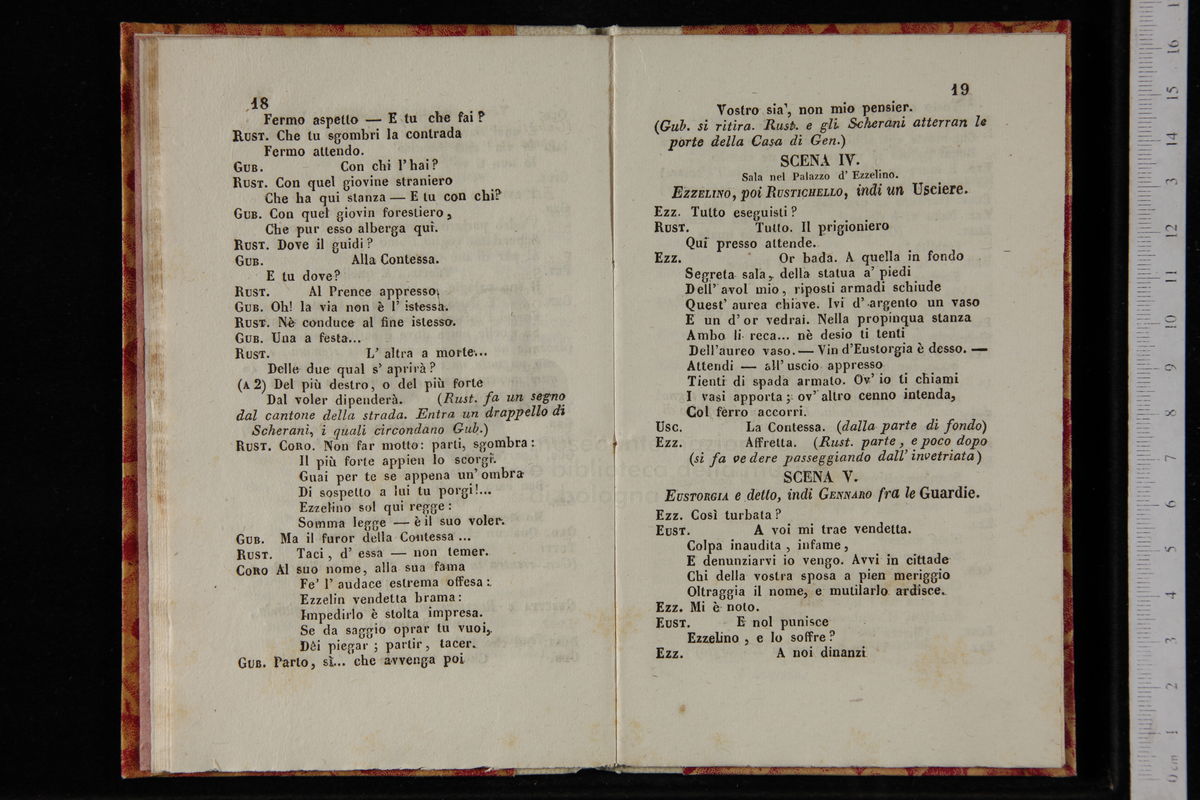 18
Fermo aspetto — E tu che fai?
RUST. Che tu sgombri la contrada
Fermo attendo.
GUB. Con chi l'hai?
RUST. Con quel giovine straniero
Che ha qui stanza — E tu con chi?
GUB. Con quel giovin forestiero,
Che pur esso alberga quì.
RUST. Dove il guidi?
GUB. Alla Contessa.
E tu dove?
RUST. Al Prence appresso.
GUB. Oh! la via non è l' istessa.
RUST. Nè conduce al fine istesso.
GUB. Una a festa...
RUST. L' altra a morte...
Delle due qual s' aprirà?
(A 2) Del più destro, o del più forte
Dal voler dipenderà. (Rust. fa un segno
dal cantone della strada. Entra un drappello di
Scherani, i quali circondano Gub.)
RUST. CORO. Non far motto: parti, sgombra:
Il più forte appien lo scorgi.
Guai per te se appena un' ombra
Di sospetto a lui tu porgi!...
Ezzelino sol qui regge:
Somma legge — è il suo voler.
GUB. Ma il furor della Contessa ...
RUST. Taci, d' essa — non temer.
CORO Al suo nome, alla sua fama
Fe' l' audace estrema offesa:
Ezzelin vendetta brama:
Impedirlo è stolta impresa.
Se da saggio oprar tu vuoi,
Dèi piegar; partir, tacer.
GUB. Parto, sì... che avvenga poi
19
Vostro sia', non mio pensier.
(Gub. si ritira. Rust. e gli Scherani atterran le
porte della Casa di Gen.)
SCENA IV.
Sala nel Palazzo d' Ezzelino.
EZZELINO, poi RUSTICHELLO, indi un Usciere.
EZZ. Tutto eseguisti?
RUST. Tutto. Il prigioniero
Qui presso attende.
EZZ. Or bada. A quella in fondo
Segreta sala, della statua a' piedi
Dell' avol mio, riposti armadi schiude
Quest' aurea chiave. Ivi d' argento un vaso
E un d' or vedrai. Nella propinqua stanza
Ambo li reca... nè desio ti tenti
Dell'aureo vaso. — Vin d'Eustorgia è desso. —
Attendi — all' uscio appresso
Tienti di spada armato. Ov' io ti chiami
I vasi apporta; ov' altro cenno intenda,
Col ferro accorri.
USC. La Contessa. (dalla parte di fondo)
EZZ. Affretta. (Rust. parte, e poco dopo
(si fa vedere passeggiando dall' invetriata)
SCENA V.
EUSTORGIA e detto, indi GENNARO fra le Guardie.
EZZ. Così turbata?
EUST. A voi mi trae vendetta.
Colpa inaudita, infame,
E denunziarvi io vengo. Avvi in cittade
Chi della vostra sposa a pien meriggio
Oltraggia il nome, e mutilarlo ardisce.
EZZ. Mi è noto.
EUST. E nol punisce
Ezzelino, e lo soffre?
EZZ. A noi dinanzi